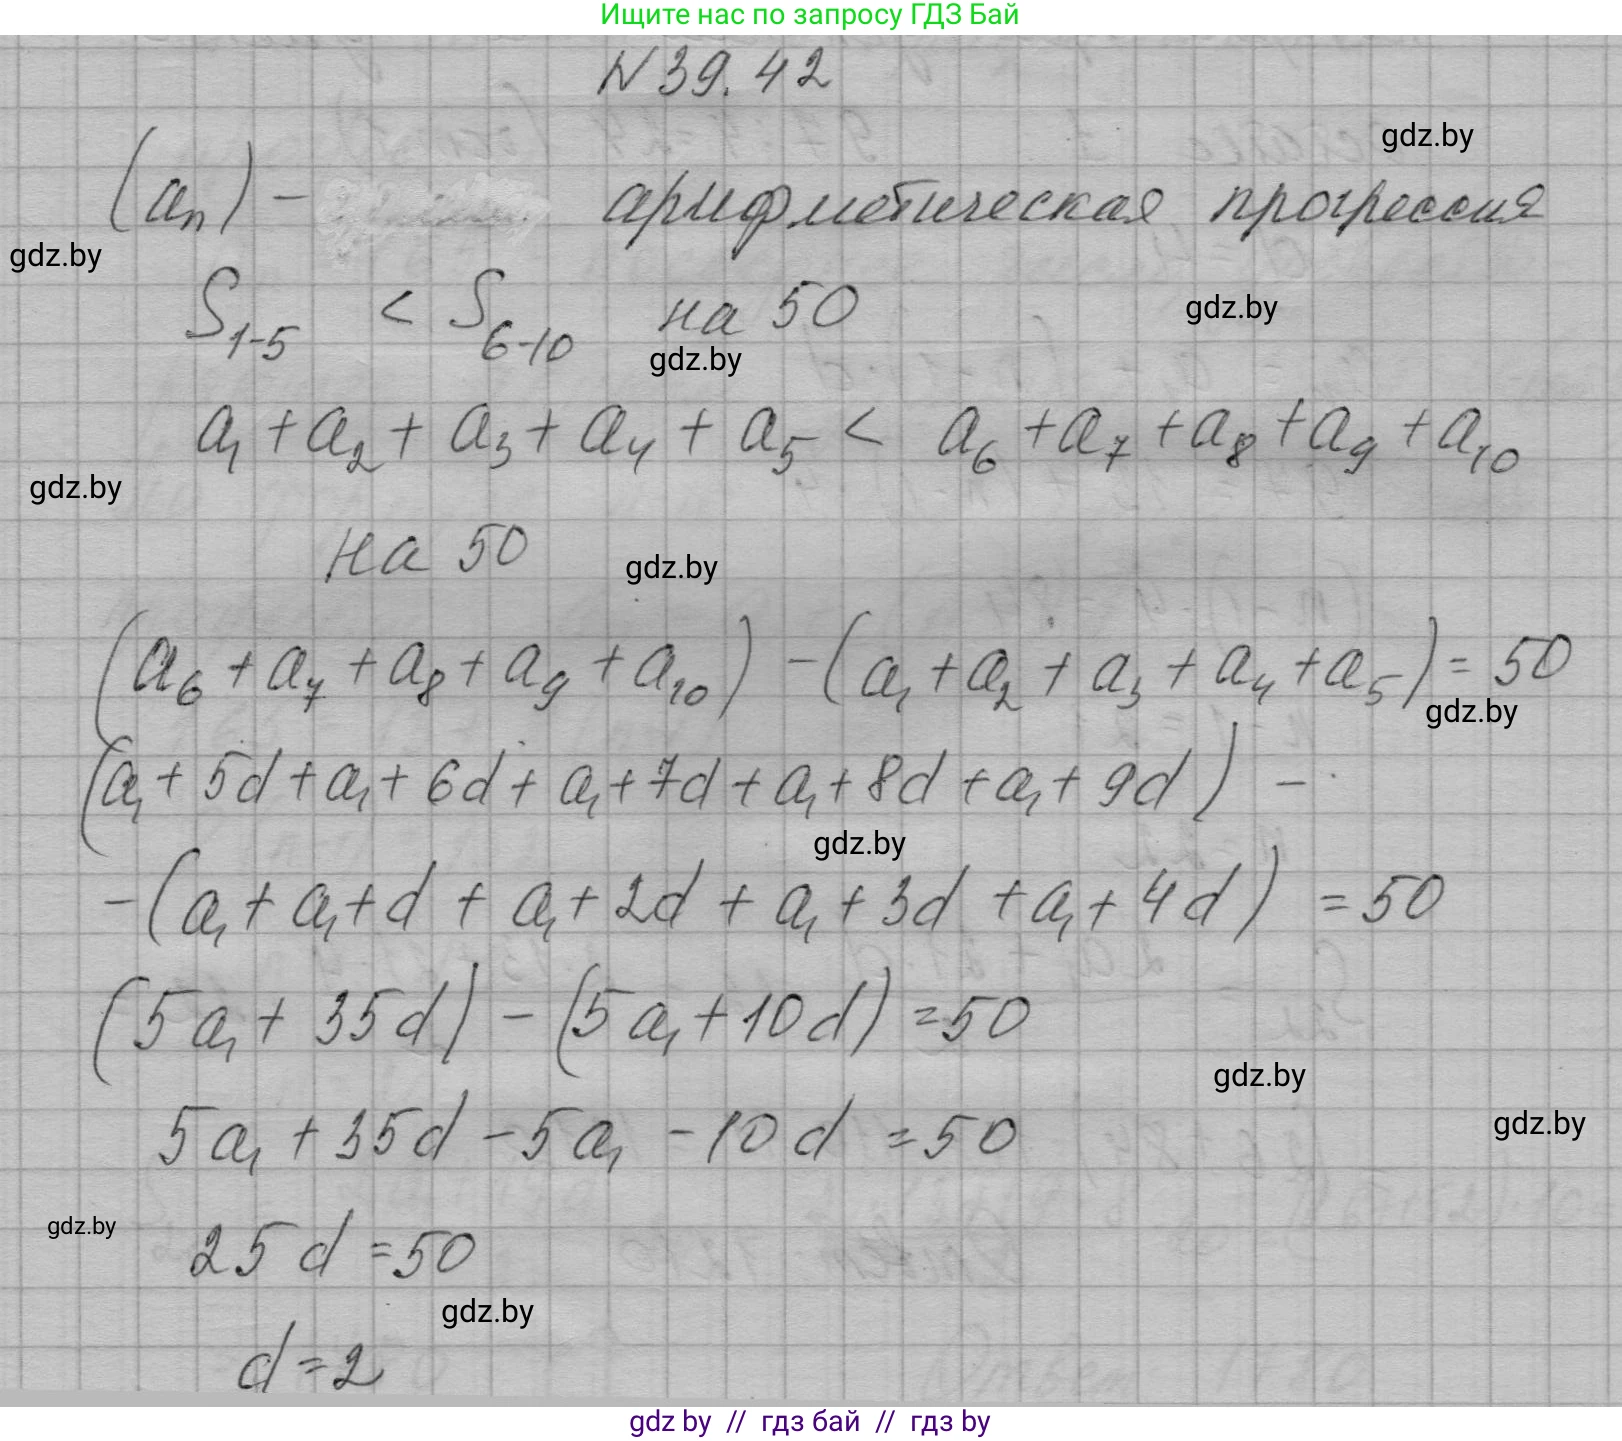 Ищите нас по запросу ГДЗ Бай
N 39.42
gdz.by
(aₙ) – арифметическая прогрессия
gdz.by
S₁₋₅ < S₆₋₁₀ на 50
gdz.by
gdz.by
a₁ + a₂ + a₃ + a₄ + a₅ < a₆ + a₇ + a₈ + a₉ + a₁₀
gdz.by
на 50
gdz.by
(a₆ + a₇ + a₈ + a₉ + a₁₀) – (a₁ + a₂ + a₃ + a₄ + a₅) = 50
gdz.by
(a₁ + 5d + a₁ + 6d + a₁ + 7d + a₁ + 8d + a₁ + 9d) –
gdz.by
– (a₁ + a₁ + d + a₁ + 2d + a₁ + 3d + a₁ + 4d) = 50
(5a₁ + 35d) – (5a₁ + 10d) = 50
gdz.by
5a₁ + 35d – 5a₁ – 10d = 50
gdz.by
gdz.by
25d = 50
gdz.by
d = 2
gdz by // гдз бай // гдз by